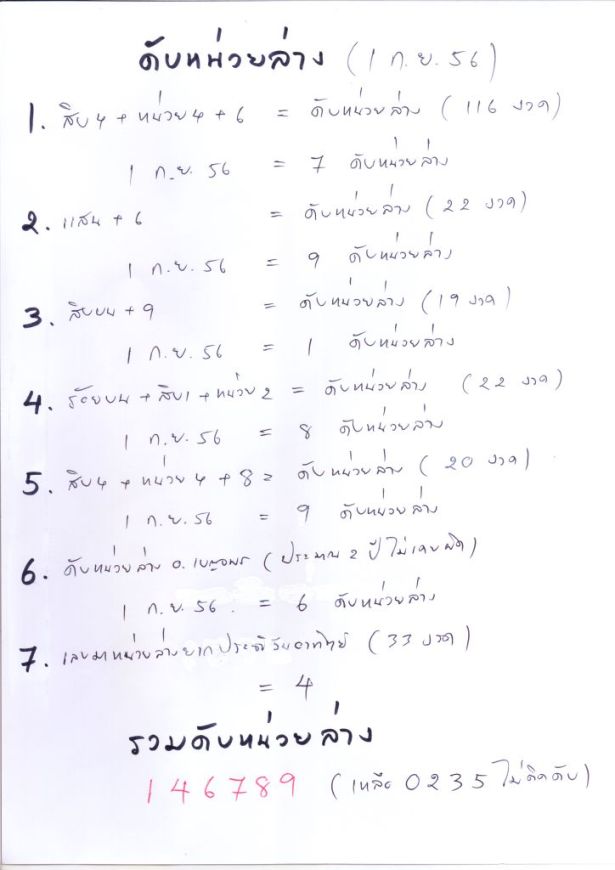 ดับหน่วยล่าง (1 ก.ย. 56)
1. สิบ4 + หน่วย4 + 6 = ดับหน่วยล่าง (116 งวด)
1 ก.ย. 56 = 7 ดับหน่วยล่าง
2. แสน + 6 = ดับหน่วยล่าง (22 งวด)
1 ก.ย. 56 = 9 ดับหน่วยล่าง
3. สิบบน + 9 = ดับหน่วยล่าง (19 งวด)
1 ก.ย. 56 = 1 ดับหน่วยล่าง
4. ร้อยบน + สิบ1 + หน่วย2 = ดับหน่วยล่าง (22 งวด)
1 ก.ย. 56 = 8 ดับหน่วยล่าง
5. สิบ4 + หน่วย4 + 8 = ดับหน่วยล่าง (20 งวด)
1 ก.ย. 56 = 9 ดับหน่วยล่าง
6. ดับหน่วยล่าง อ.เบญจพร (ประมาณ 2 ปี ไม่เคยผิด)
1 ก.ย. 56. = 6 ดับหน่วยล่าง
7. เลขมาหน่วยล่างยากประจำวันอาทิตย์ (33 งวด)
= 4
รวมดับหน่วยล่าง
146789 (เหลือ 0235 ไม่ติดดับ)